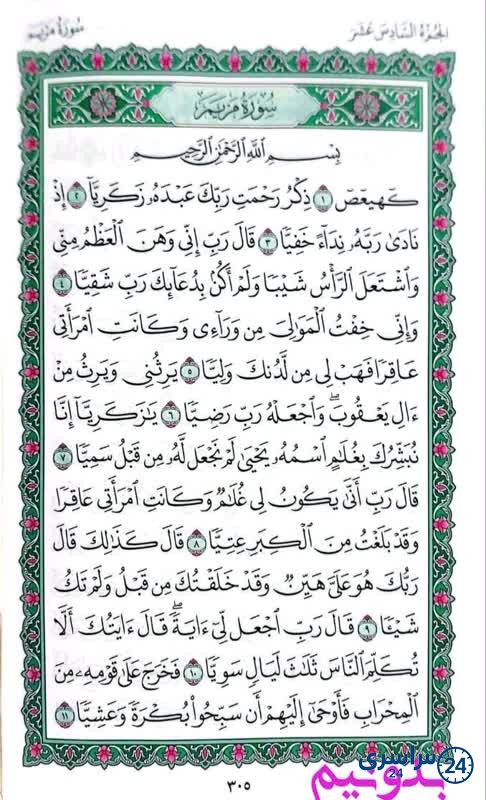 الجزء السادس عشر
سورة مريم
سُورَةُ مَرْيَمَ
بِسْمِ اللَّهِ الرَّحْمَٰنِ الرَّحِيمِ
كٓهيعٓصٓ ۝١ ذِكْرُ رَحْمَتِ رَبِّكَ عَبْدَهُۥ زَكَرِيَّآ ۝٢ إِذْ
نَادَىٰ رَبَّهُۥ نِدَآءً خَفِيًّا ۝٣ قَالَ رَبِّ إِنِّى وَهَنَ ٱلْعَظْمُ مِنِّى
وَٱشْتَعَلَ ٱلرَّأْسُ شَيْبًا وَلَمْ أَكُنۢ بِدُعَآئِكَ رَبِّ شَقِيًّا ۝٤
وَإِنِّى خِفْتُ ٱلْمَوَٰلِىَ مِن وَرَآءِى وَكَانَتِ ٱمْرَأَتِى
عَاقِرًا فَهَبْ لِى مِن لَّدُنكَ وَلِيًّا ۝٥ يَرِثُنِى وَيَرِثُ مِنْ
ءَالِ يَعْقُوبَ ۖ وَٱجْعَلْهُ رَبِّ رَضِيًّا ۝٦ يَٰزَكَرِيَّآ إِنَّا
نُبَشِّرُكَ بِغُلَٰمٍ ٱسْمُهُۥ يَحْيَىٰ لَمْ نَجْعَل لَّهُۥ مِن قَبْلُ سَمِيًّا ۝٧
قَالَ رَبِّ أَنَّىٰ يَكُونُ لِى غُلَٰمٌ وَكَانَتِ ٱمْرَأَتِى عَاقِرًا
وَقَدْ بَلَغْتُ مِنَ ٱلْكِبَرِ عِتِيًّا ۝٨ قَالَ كَذَٰلِكَ قَالَ
رَبُّكَ هُوَ عَلَىَّ هَيِّنٌ وَقَدْ خَلَقْتُكَ مِن قَبْلُ وَلَمْ تَكُ
شَيْـًٔا ۝٩ قَالَ رَبِّ ٱجْعَل لِّىٓ ءَايَةً ۚ قَالَ ءَايَتُكَ أَلَّا
تُكَلِّمَ ٱلنَّاسَ ثَلَٰثَ لَيَالٍ سَوِيًّا ۝١٠ فَخَرَجَ عَلَىٰ قَوْمِهِۦ مِنَ
ٱلْمِحْرَابِ فَأَوْحَىٰٓ إِلَيْهِمْ أَن سَبِّحُوا۟ بُكْرَةً وَعَشِيًّا ۝١١
٣٠٥
سراسری 24
24
بدونیم